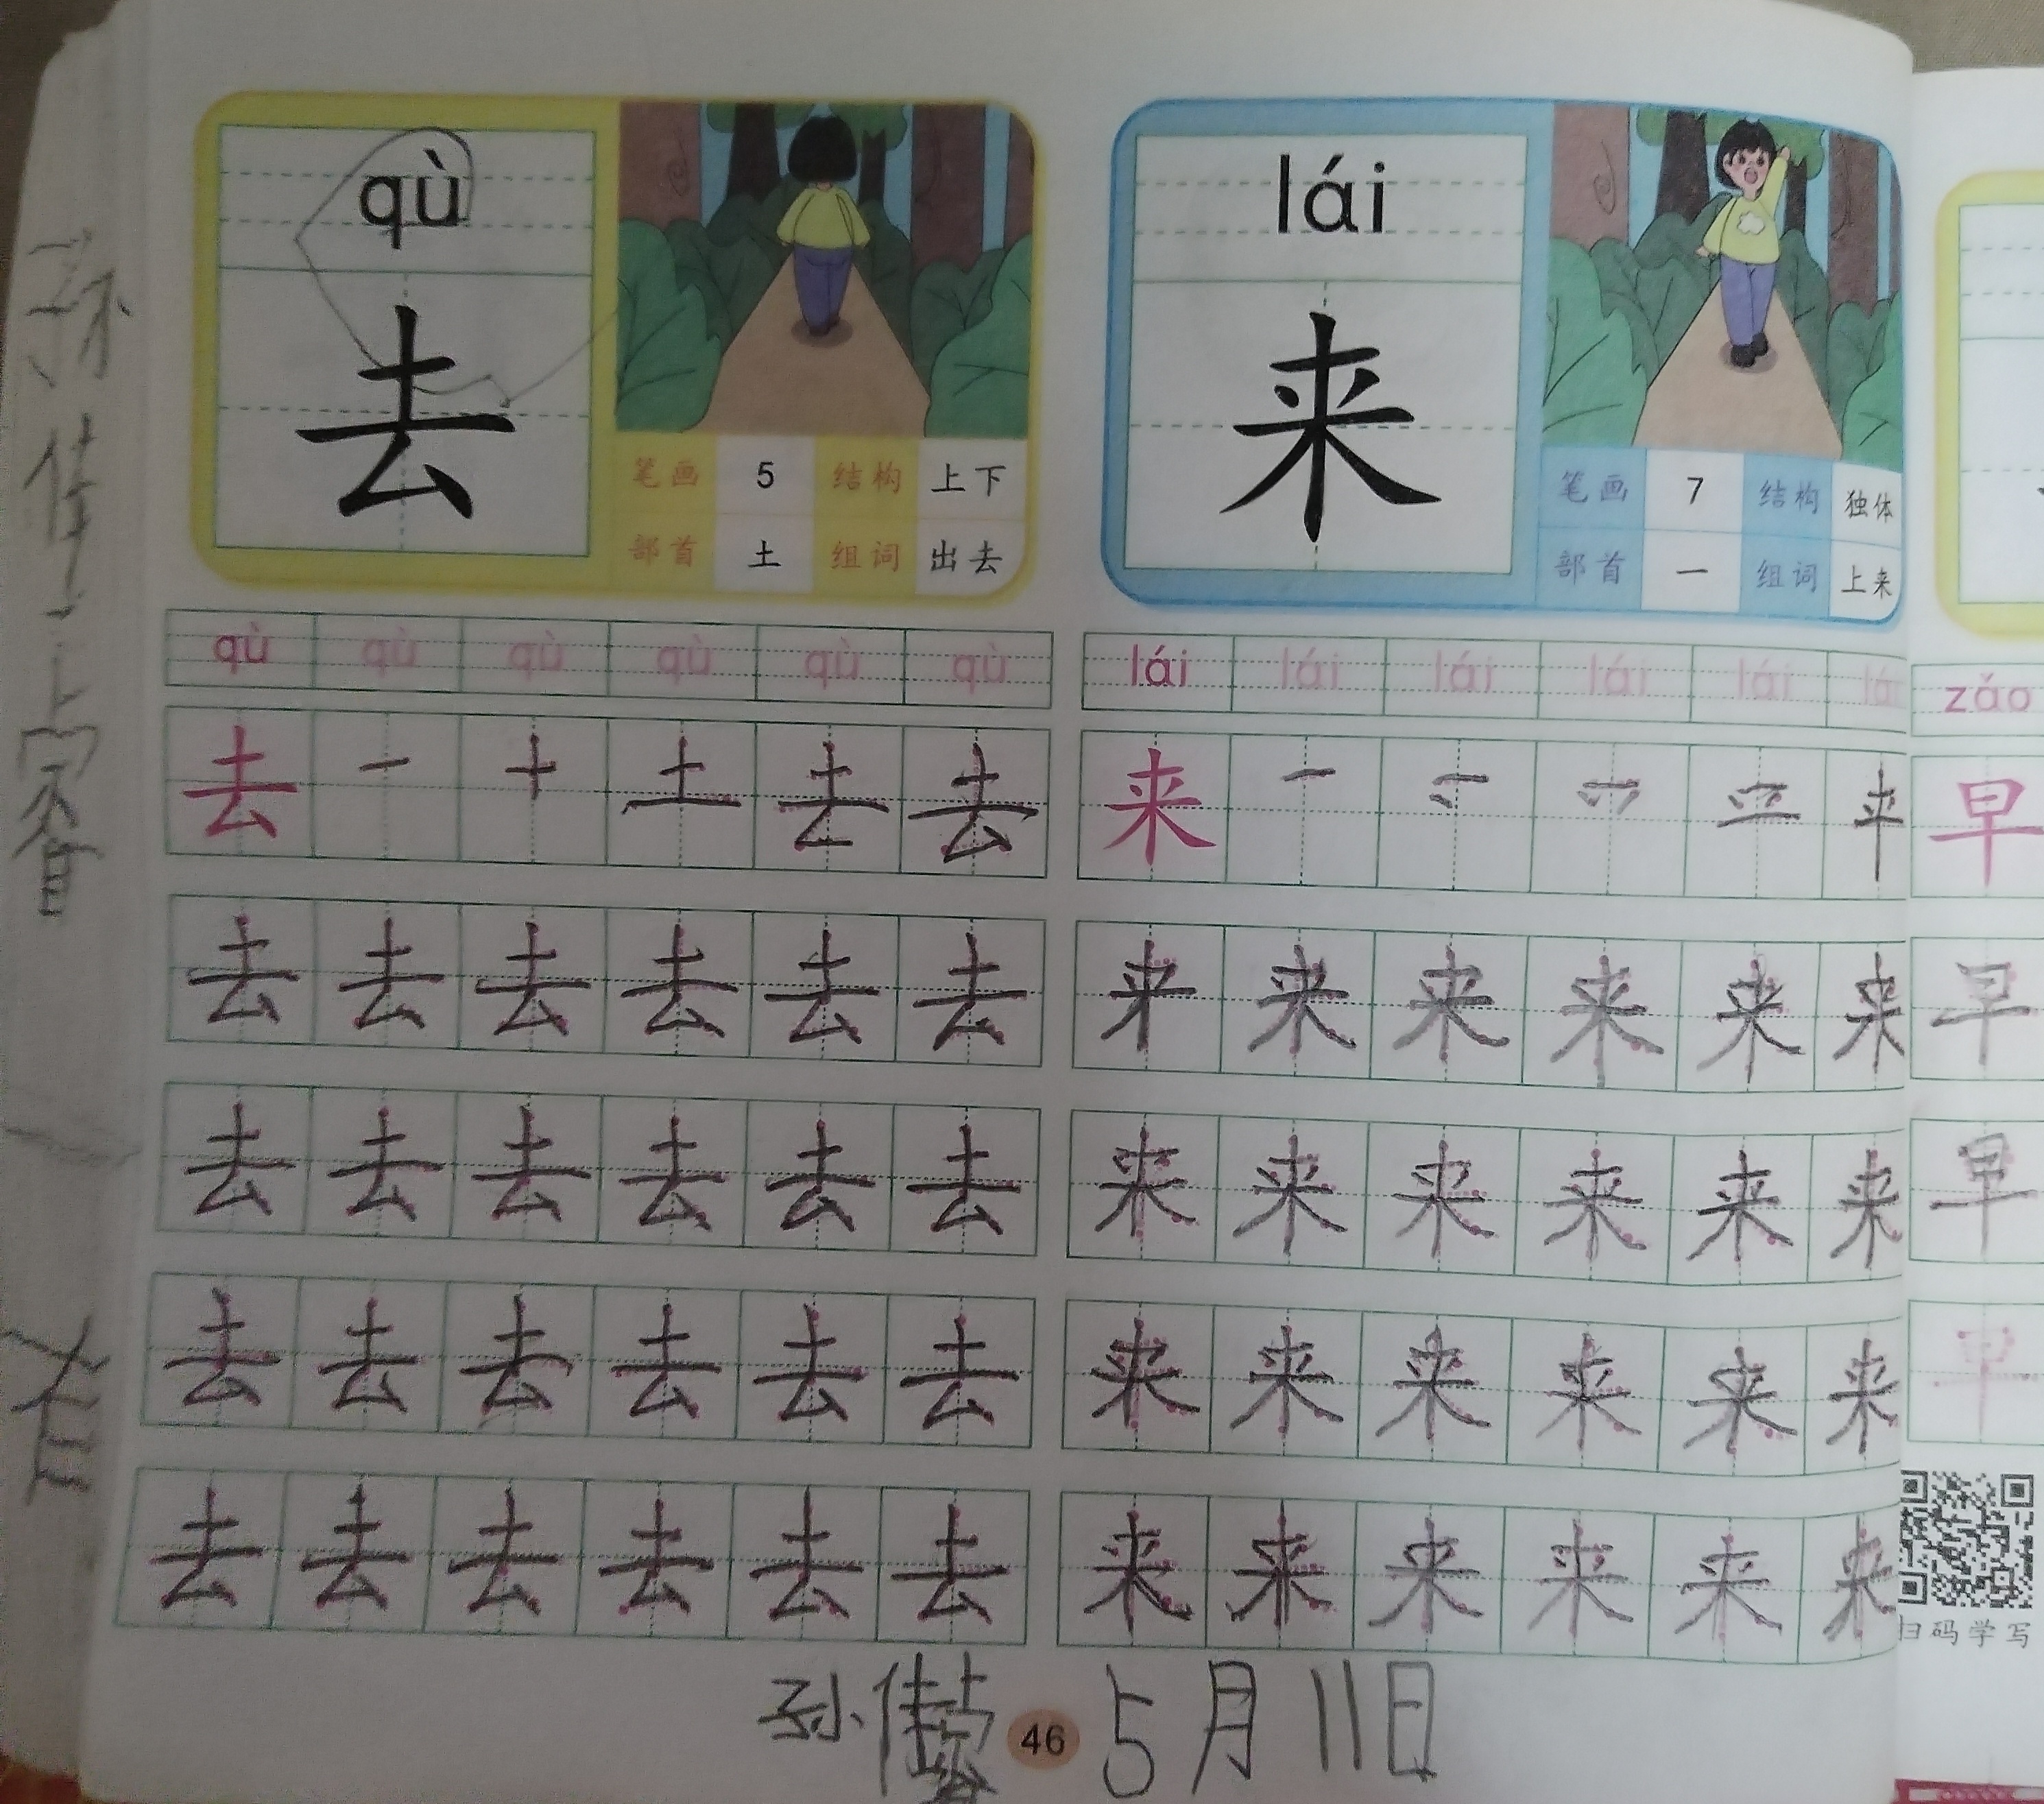 qù
去
笔画 5 结构 上下
部首 土 组词 出去
lái
来
笔画 7 结构 独体
部首 一 组词 上来
qù qù qù qù qù qù
去 一 十 土 去 去
去 去 去 去 去 去
去 去 去 去 去 去
去 去 去 去 去 去
去 去 去 去 去 去
lái lái lái lái lái lái
来 一
来 来 来 来 来 来
来 来 来 来 来 来
来 来 来 来 来 来
来 来 来 来 来 来
zǎo
早
早
早
早
扫码学写
孙佳睿
孙佳睿 46 5月11日